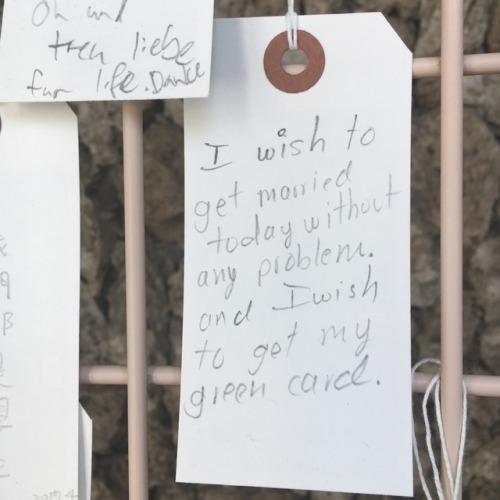 Oh und
treu liebe
fur life. Danke
I wish to
get married
today without
any problem.
and I wish
to get my
green card.